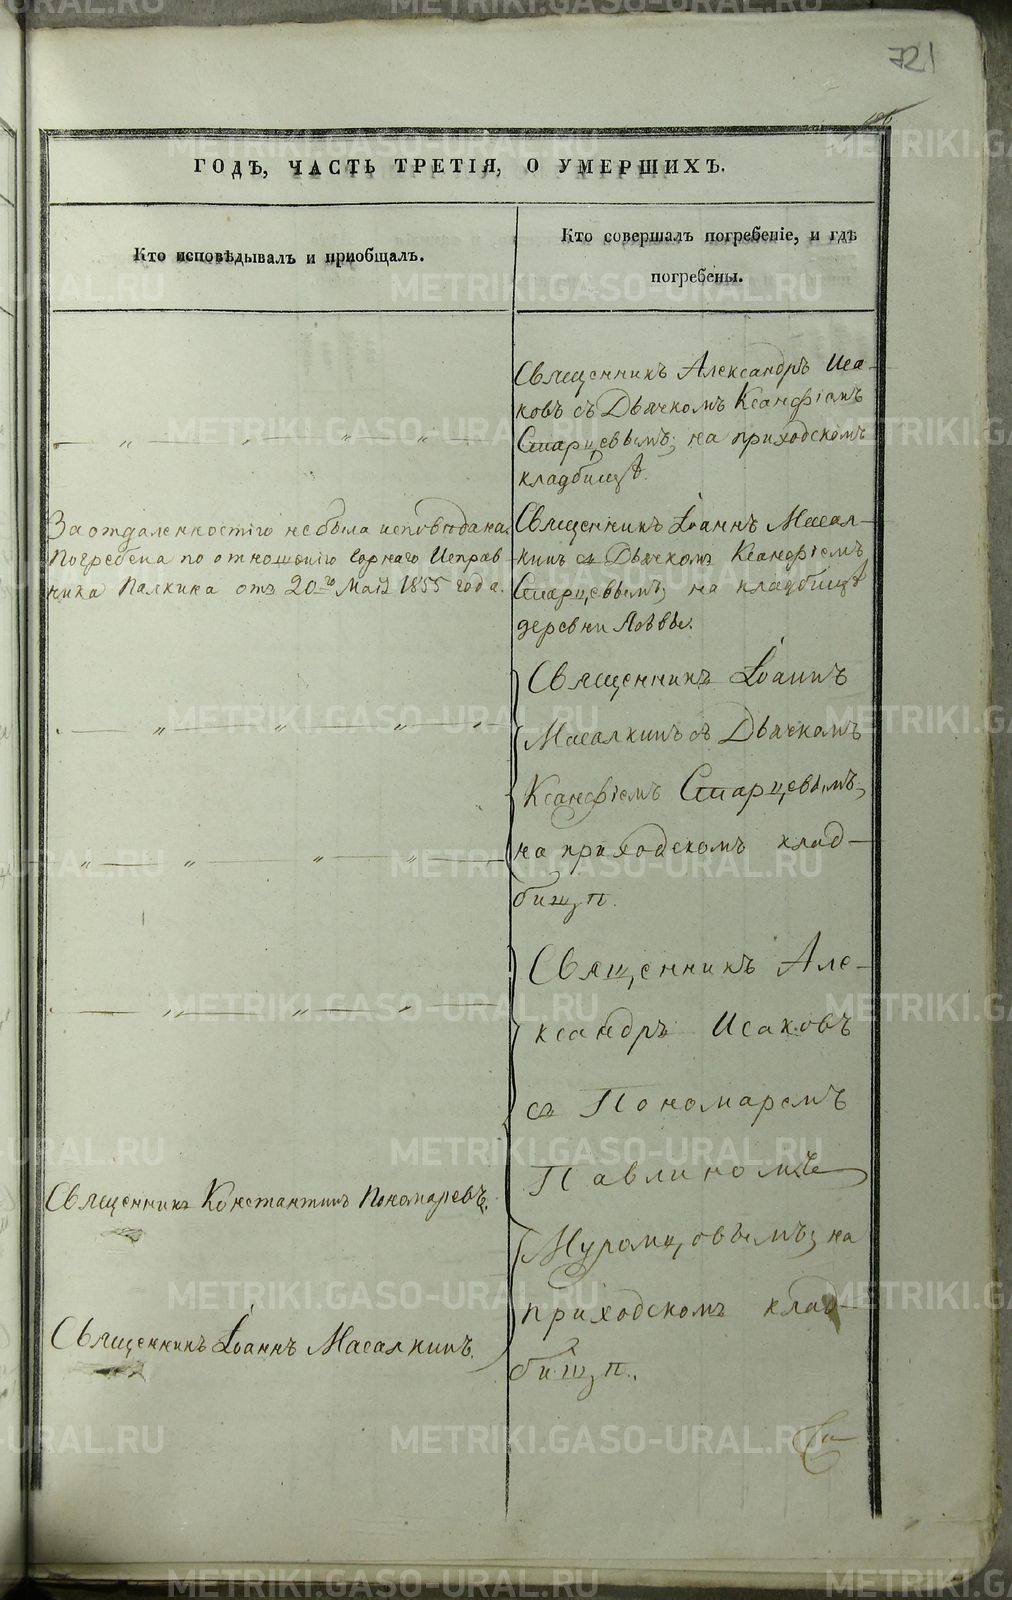 721
ГОДЪ, ЧАСТЬ ТРЕТІЯ, О УМЕРШИХЪ.
Кто исповѣдывалъ и пріобщалъ.
Кто совершалъ погребеніе, и гдѣ
погребены.
Священникъ Александръ Иса-
ковъ съ Дьячкомъ Ксанфіемъ
Старцевымъ, на приходскомъ
кладбищѣ.
За отдаленностію не была исповѣдана.
Погребена по отношенію Горнаго Исправ
ника Палкина отъ 20го Мая 1855 года.
Священникъ Іоаннъ Масал-
кинъ съ Дьячкомъ Ксанфіемъ
Старцевымъ, на кладбищѣ
деревни Ляввы.
Священникъ Іоаннъ
Масалкинъ съ Дьячкомъ
Ксанфіемъ Старцевымъ,
на приходскомъ клад-
бищѣ.
Священникъ Але-
ксандръ Исаковъ
съ Пономаремъ
Павлиномъ
Муромцовымъ, на
приходскомъ клад-
бищѣ.
Священникъ Константинъ Пономаревъ.
Священникъ Іоаннъ Масалкинъ.
METRIKI.GASO-URAL.RU